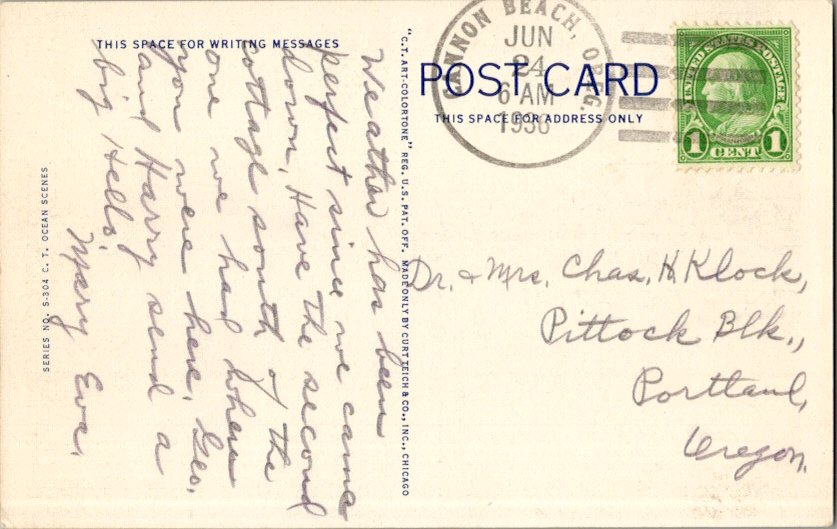 THIS SPACE FOR WRITING MESSAGES
Weather has been
perfect since we came
down. Have the second
cottage south of the
one we had when
you were here. Geo.
and Harry send a
big Hello.
Mary Eva.
SERIES NO. S-304 C. T. OCEAN SCENES
"C.T. ART-COLORTONE" REG. U.S. PAT. OFF. MADE ONLY BY CURT TEICH & CO., INC., CHICAGO
CANNON BEACH, OREG.
JUN
24
6 AM
1936
UNITED STATES POSTAGE
1 CENT 1
POST CARD
THIS SPACE FOR ADDRESS ONLY
Dr. & Mrs. Chas. H. Klock,
Pittock Blk.,
Portland,
Oregon.